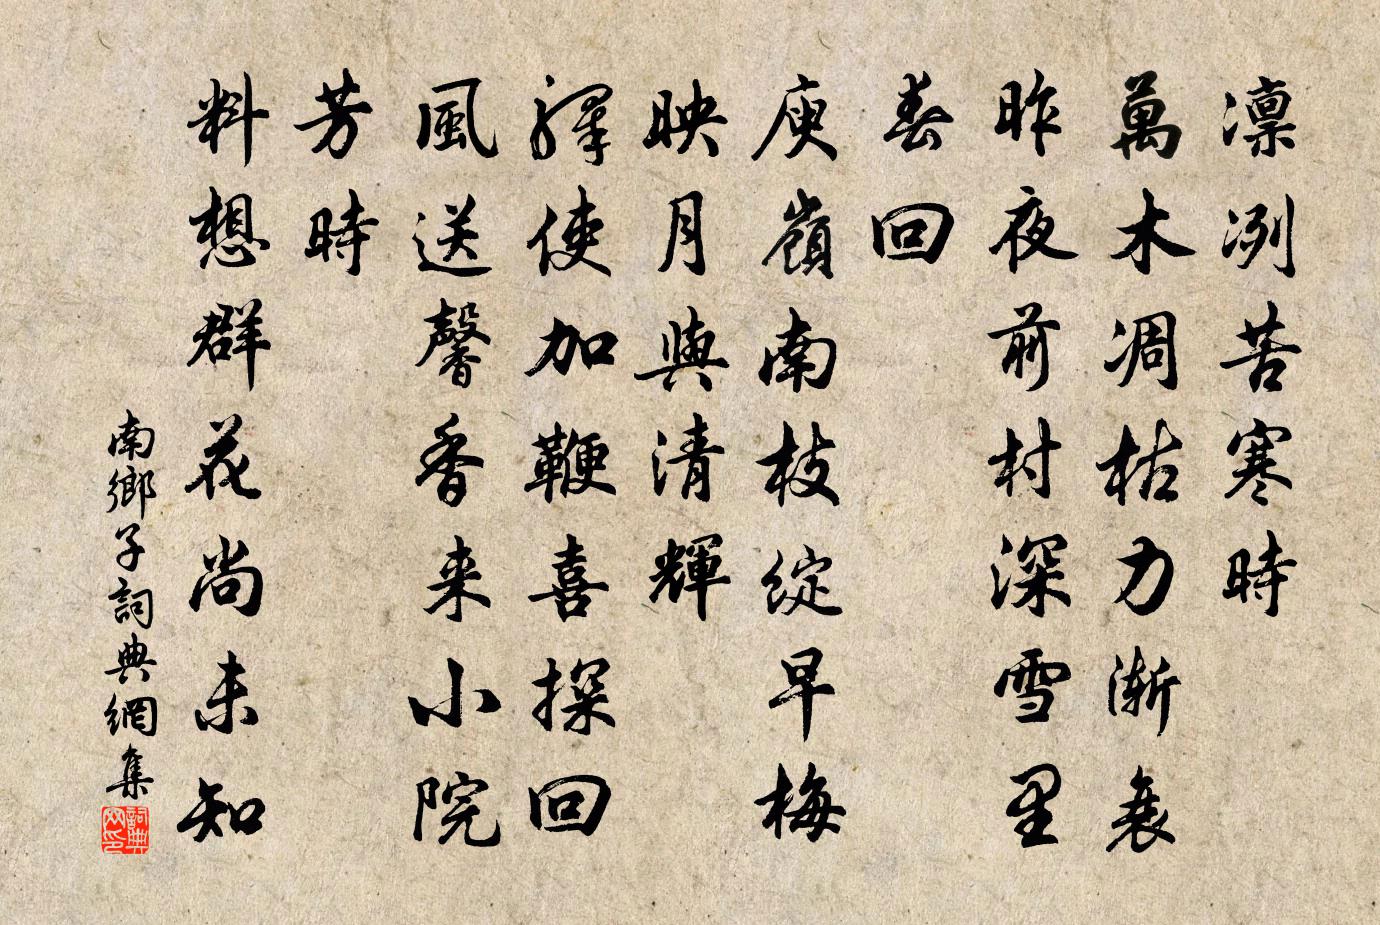 凛冽苦寒時
萬木凋枯力漸衰
昨夜前村深雪里
春回
庾嶺南枝綻早梅
映月與清輝
驛使加鞭喜探回
風送馨香来小院
芳時
料想群花尚未知
南鄉子詞典網集
詞典
网印